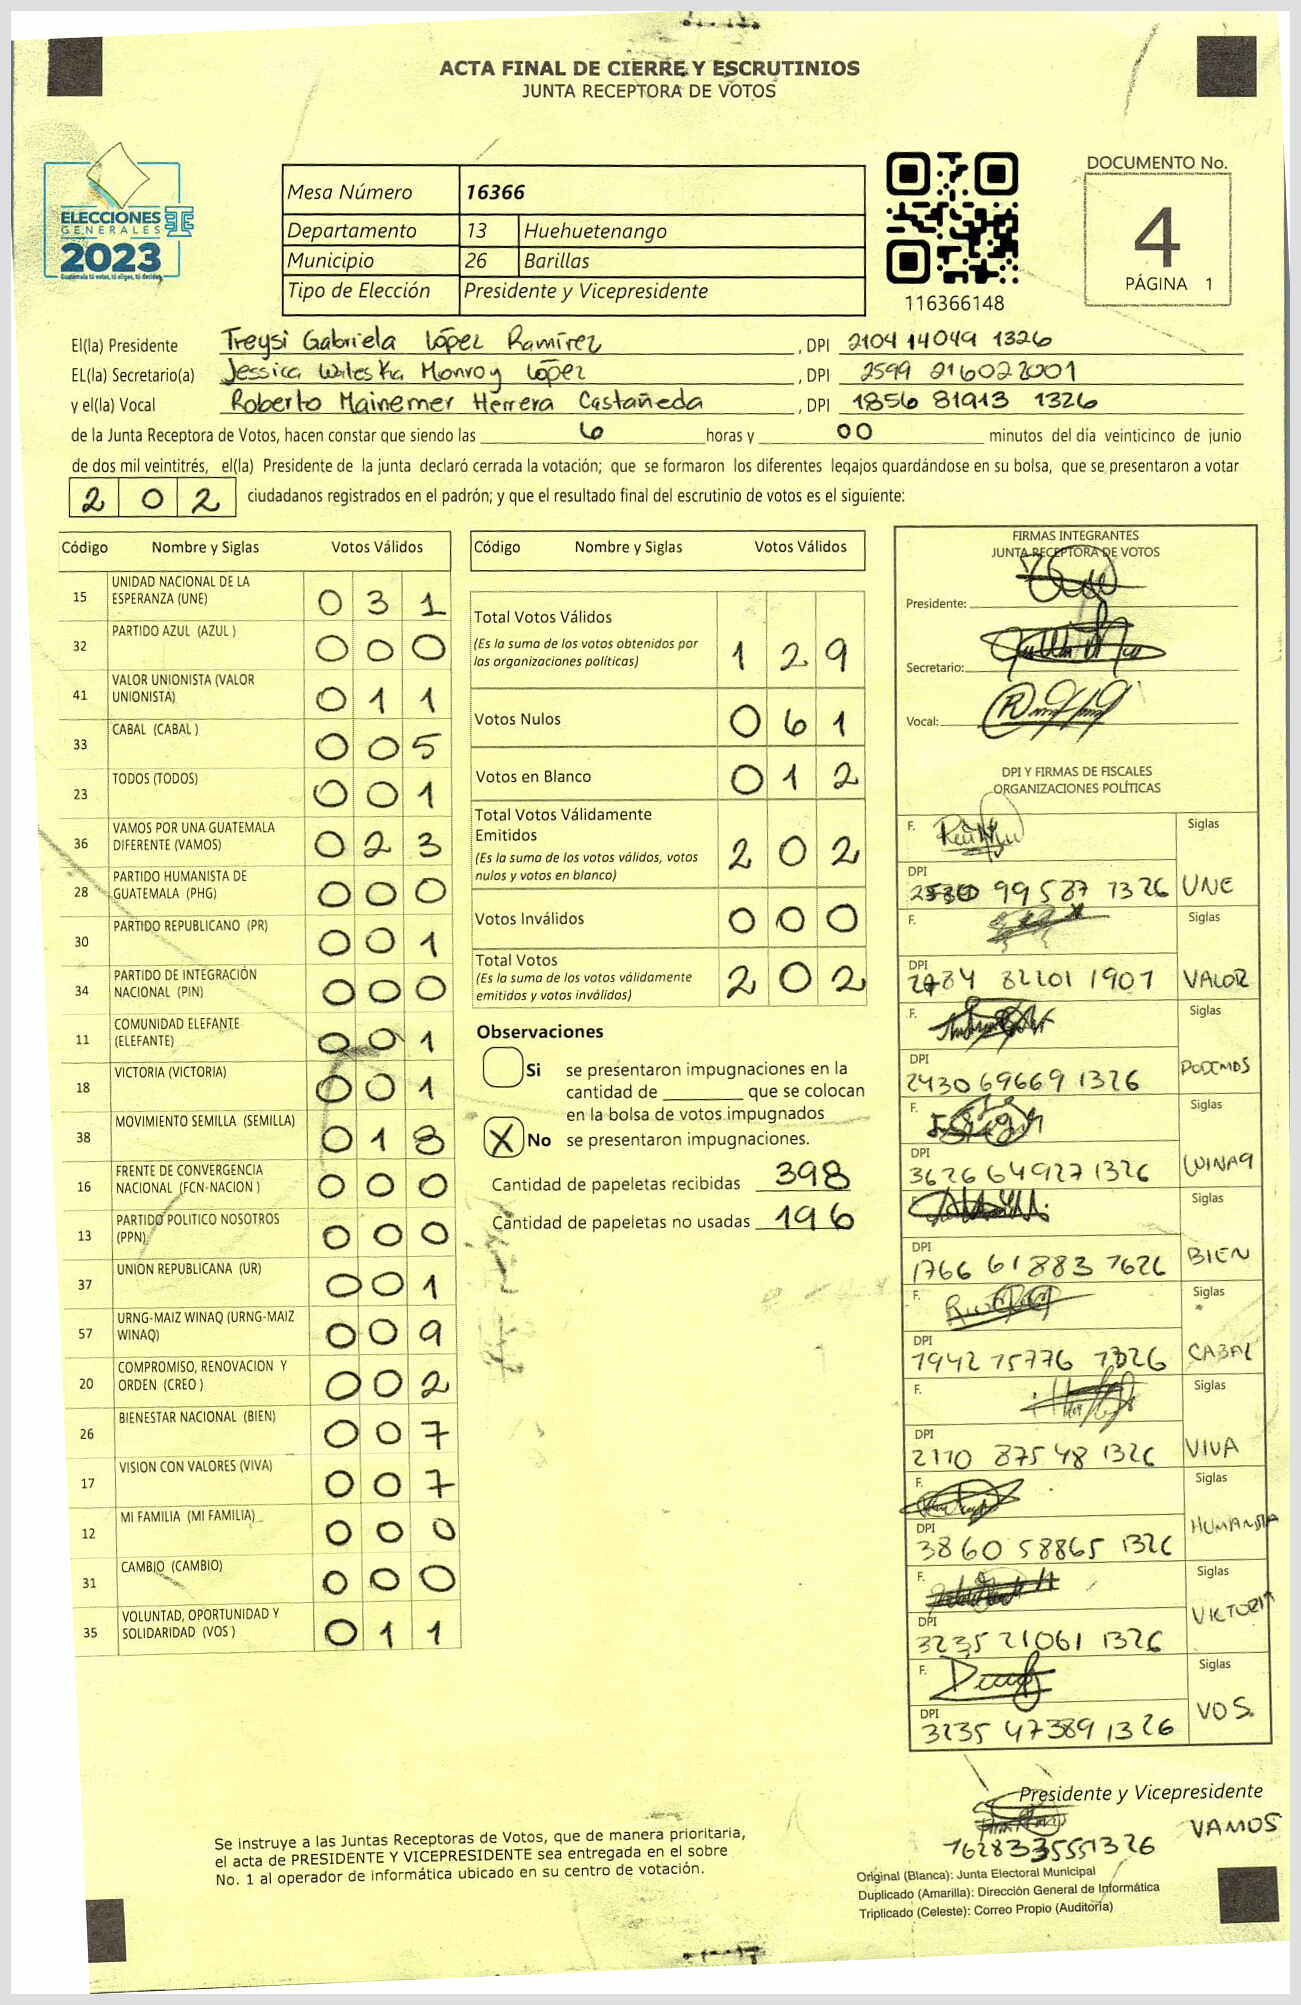 ACTA FINAL DE CIERRE Y ESCRUTINIOS
JUNTA RECEPTORA DE VOTOS
ELECCIONES
GENERALES
2023
Mesa Número 16366
Departamento 13 Huehuetenango
Municipio 26 Barillas
Tipo de Elección Presidente y Vicepresidente
116366148
DOCUMENTO No.
4
PÁGINA 1
El(la) Presidente Treysi Gabriela López Ramírez , DPI 2104 14049 1326
EL(la) Secretario(a) Jessica Waleska Monroy López , DPI 2599 216022001
y el(la) Vocal Roberto Mainemer Herrera Castañeda , DPI 1856 81913 1326
de la Junta Receptora de Votos, hacen constar que siendo las 6 horas y 00 minutos del día veinticinco de junio
de dos mil veintitrés, el(la) Presidente de la junta declaró cerrada la votación; que se formaron los diferentes legajos guardándose en su bolsa, que se presentaron a votar
202 ciudadanos registrados en el padrón; y que el resultado final del escrutinio de votos es el siguiente:
Código Nombre y Siglas Votos Válidos
15 UNIDAD NACIONAL DE LA ESPERANZA (UNE) 031
32 PARTIDO AZUL (AZUL ) 000
41 VALOR UNIONISTA (VALOR UNIONISTA) 011
33 CABAL (CABAL ) 005
23 TODOS (TODOS) 001
36 VAMOS POR UNA GUATEMALA DIFERENTE (VAMOS) 023
28 PARTIDO HUMANISTA DE GUATEMALA (PHG) 000
30 PARTIDO REPUBLICANO (PR) 001
34 PARTIDO DE INTEGRACIÓN NACIONAL (PIN) 000
11 COMUNIDAD ELEFANTE (ELEFANTE) 001
18 VICTORIA (VICTORIA) 001
38 MOVIMIENTO SEMILLA (SEMILLA) 018
16 FRENTE DE CONVERGENCIA NACIONAL (FCN-NACION ) 000
13 PARTIDO POLITICO NOSOTROS (PPN) 000
37 UNION REPUBLICANA (UR) 001
57 URNG-MAIZ WINAQ (URNG-MAIZ WINAQ) 009
20 COMPROMISO, RENOVACION Y ORDEN (CREO ) 002
26 BIENESTAR NACIONAL (BIEN) 007
17 VISION CON VALORES (VIVA) 007
12 MI FAMILIA (MI FAMILIA) 000
31 CAMBIO (CAMBIO) 000
35 VOLUNTAD, OPORTUNIDAD Y SOLIDARIDAD (VOS ) 011
Código Nombre y Siglas Votos Válidos
Total Votos Válidos 129
(Es la suma de los votos obtenidos por
las organizaciones políticas)
Votos Nulos 061
Votos en Blanco 012
Total Votos Válidamente
Emitidos 202
(Es la suma de los votos válidos, votos
nulos y votos en blanco)
Votos Inválidos 000
Total Votos 202
(Es la suma de los votos válidamente
emitidos y votos inválidos)
Observaciones
Si se presentaron impugnaciones en la
cantidad de ________ que se colocan
en la bolsa de votos impugnados
X No se presentaron impugnaciones.
Cantidad de papeletas recibidas 398
Cantidad de papeletas no usadas 196
FIRMAS INTEGRANTES
JUNTA RECEPTORA DE VOTOS
Presidente:
Secretario:
Vocal:
DPI Y FIRMAS DE FISCALES
ORGANIZACIONES POLÍTICAS
F. Siglas
DPI 99587 1326 UNE
F. Siglas
DPI 82201 1907 VALOR
F. Siglas
DPI 2430 69669 1326 PODEMOS
F. Siglas
DPI 3626 64927 1326 WINAQ
Siglas
DPI 1766 61883 1626 BIEN
F. Siglas
DPI 1942 15776 1326 CABAL
F. Siglas
DPI 2110 87548 1326 VIVA
F. Siglas
DPI 3860 58865 1326 HUMANISTA
F. Siglas
DPI 3235 21061 1326 VICTORIA
F. Siglas
DPI 3235 47389 1326 VOS.
Presidente y Vicepresidente
VAMOS
1628335551326
Se instruye a las Juntas Receptoras de Votos, que de manera prioritaria,
el acta de PRESIDENTE Y VICEPRESIDENTE sea entregada en el sobre
No. 1 al operador de informática ubicado en su centro de votación.
Original (Blanca): Junta Electoral Municipal
Duplicado (Amarilla): Dirección General de Informática
Triplicado (Celeste): Correo Propio (Auditoría)